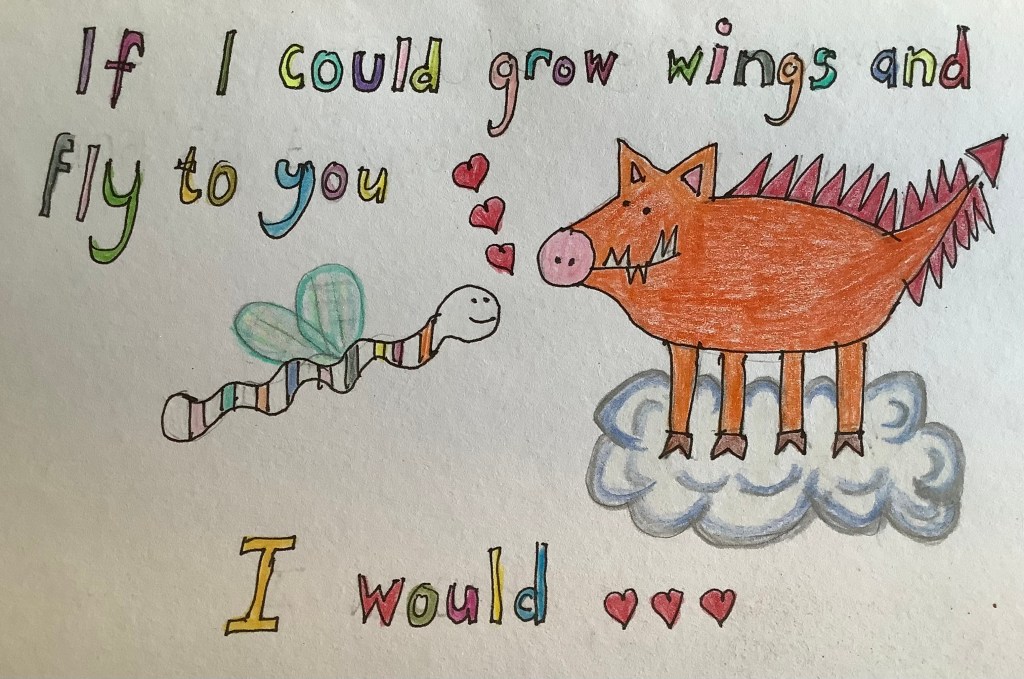 If I could grow wings and
fly to you
I would